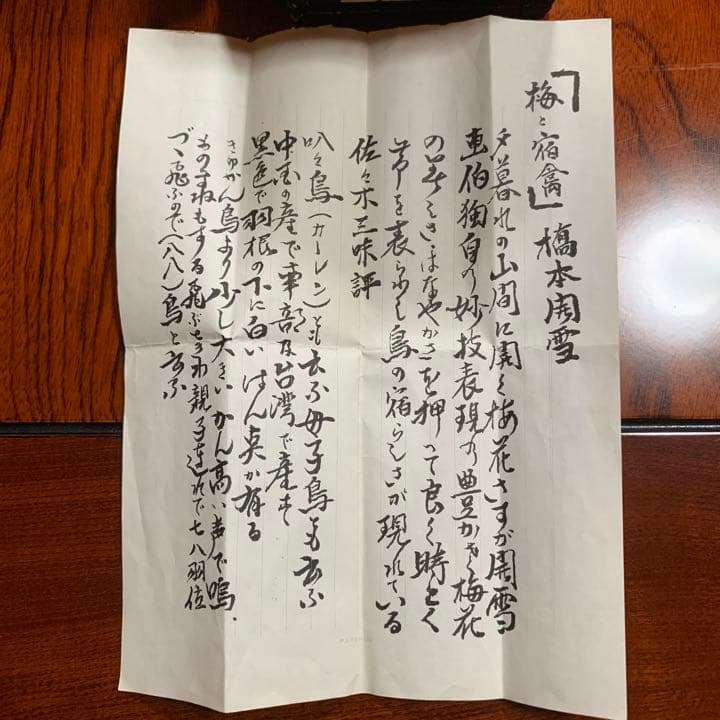 「梅と宿禽」 橋本関雪
夕暮れの山間に開く梅花さすが関雪
画伯独自の妙技表現の豊かさ梅花
のはなやかさを押って良く時とく
を表らわし鳥の宿らしさが現れている
佐々木三味評
叭々鳥(カーレン)とも云ふ母子鳥とも云ふ
中国の産で南部及台湾で産す
黒色で羽根の下に白いはん点が有る
きゅかん鳥より少し大きいかん高い声で鳴、
ものまねもする飛ぶときわ親子連れで七八羽位
づゝ飛ぶので(八八)鳥と云ふ